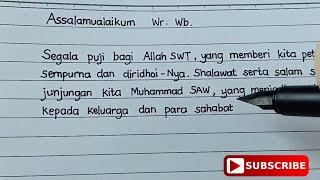 Assalamualaikum Wr. Wb.
Segala puji bagi Allah SWT, yang memberi kita
sempurna dan diridhoi-Nya. Shalawat serta salam
junjungan kita Muhammad SAW, yang
kepada keluarga dan para sahabat
SUBSCRIBE